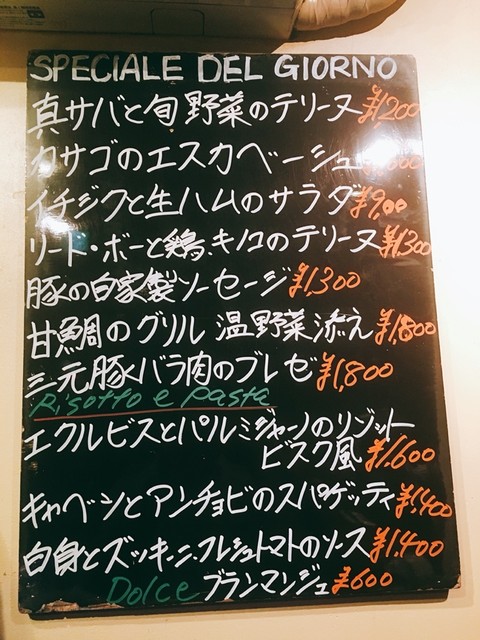 SPECIALE DEL GIORNO
真サバと旬野菜のテリーヌ ¥1200
カサゴのエスカベーシュ
イチジクと生ハムのサラダ ¥900
リード・ボーと鶏、キノコのテリーヌ ¥1,300
豚の自家製ソーセージ ¥1,300
甘鯛のグリル 温野菜添え ¥1,800
三元豚バラ肉のブレゼ ¥1,800
Risotto e pasta
エクルビスとパルミジャーノのリゾット
ビスク風 ¥1,600
キャベツとアンチョビのスパゲッティ ¥1,400
白身とズッキーニ、フレッシュトマトのソース ¥1,400
Dolce ブランマンジュ ¥600